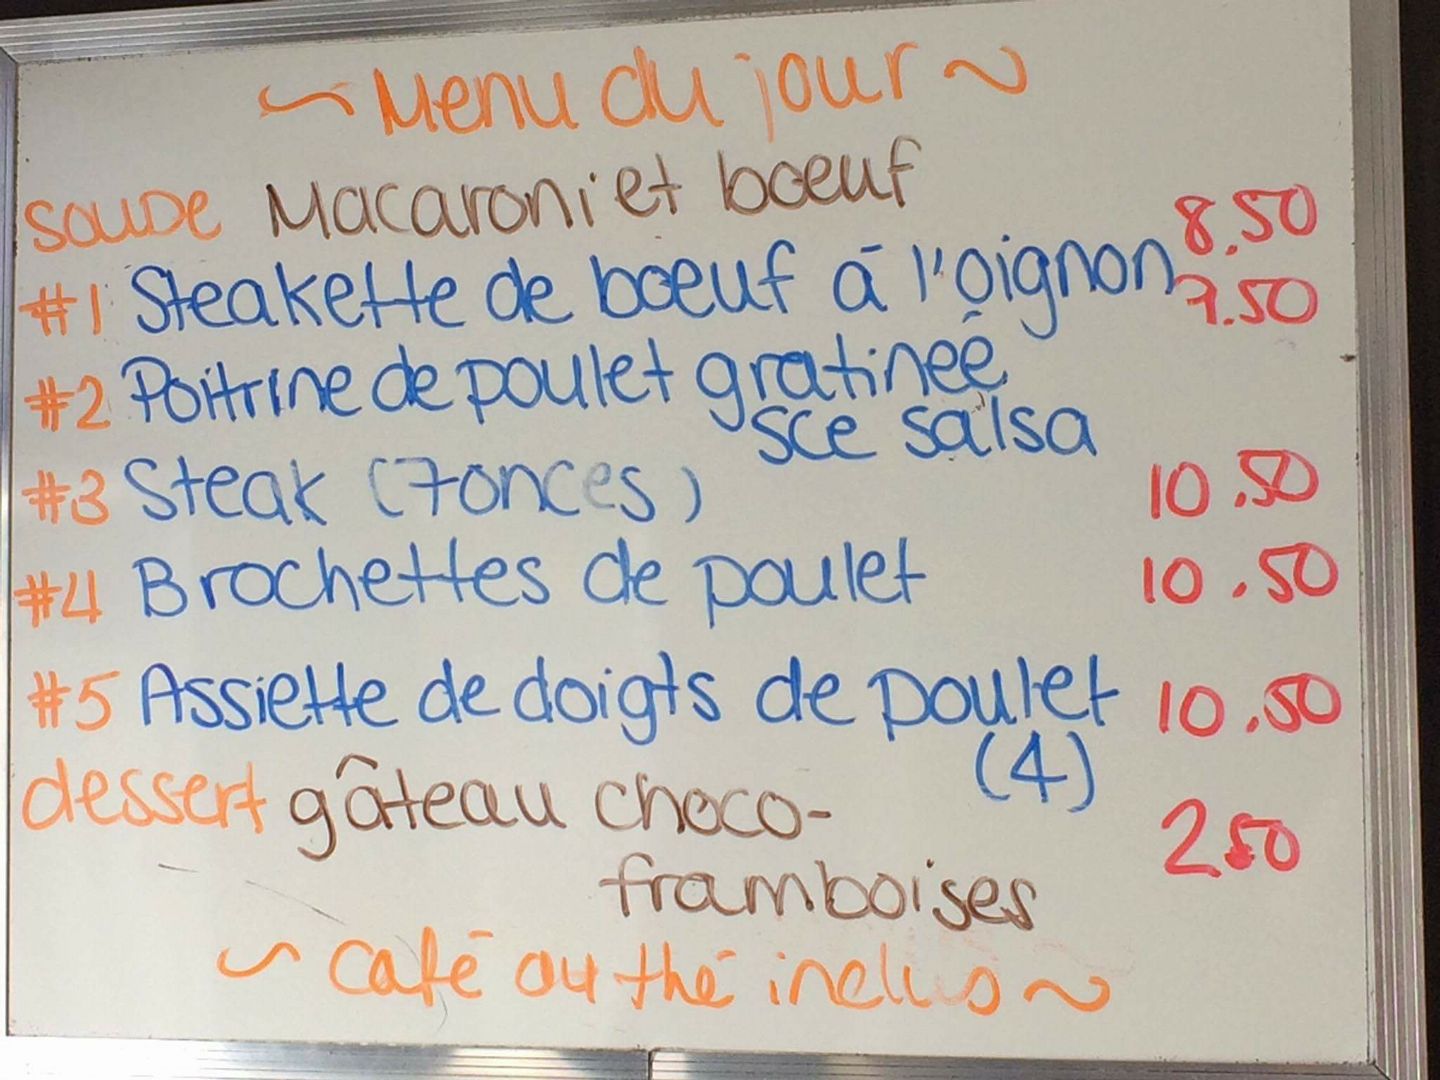 ~ Menu du jour ~
soupe Macaroni et boeuf
#1 Steakette de boeuf à l'oignon 8.50
#2 Poitrine de poulet gratinée 9.50
sce salsa
#3 Steak (7onces) 10.50
#4 Brochettes de poulet 10.50
#5 Assiette de doigts de poulet 10.50
(4)
dessert gâteau choco- 2.50
framboises
~ Café ou thé inclus ~